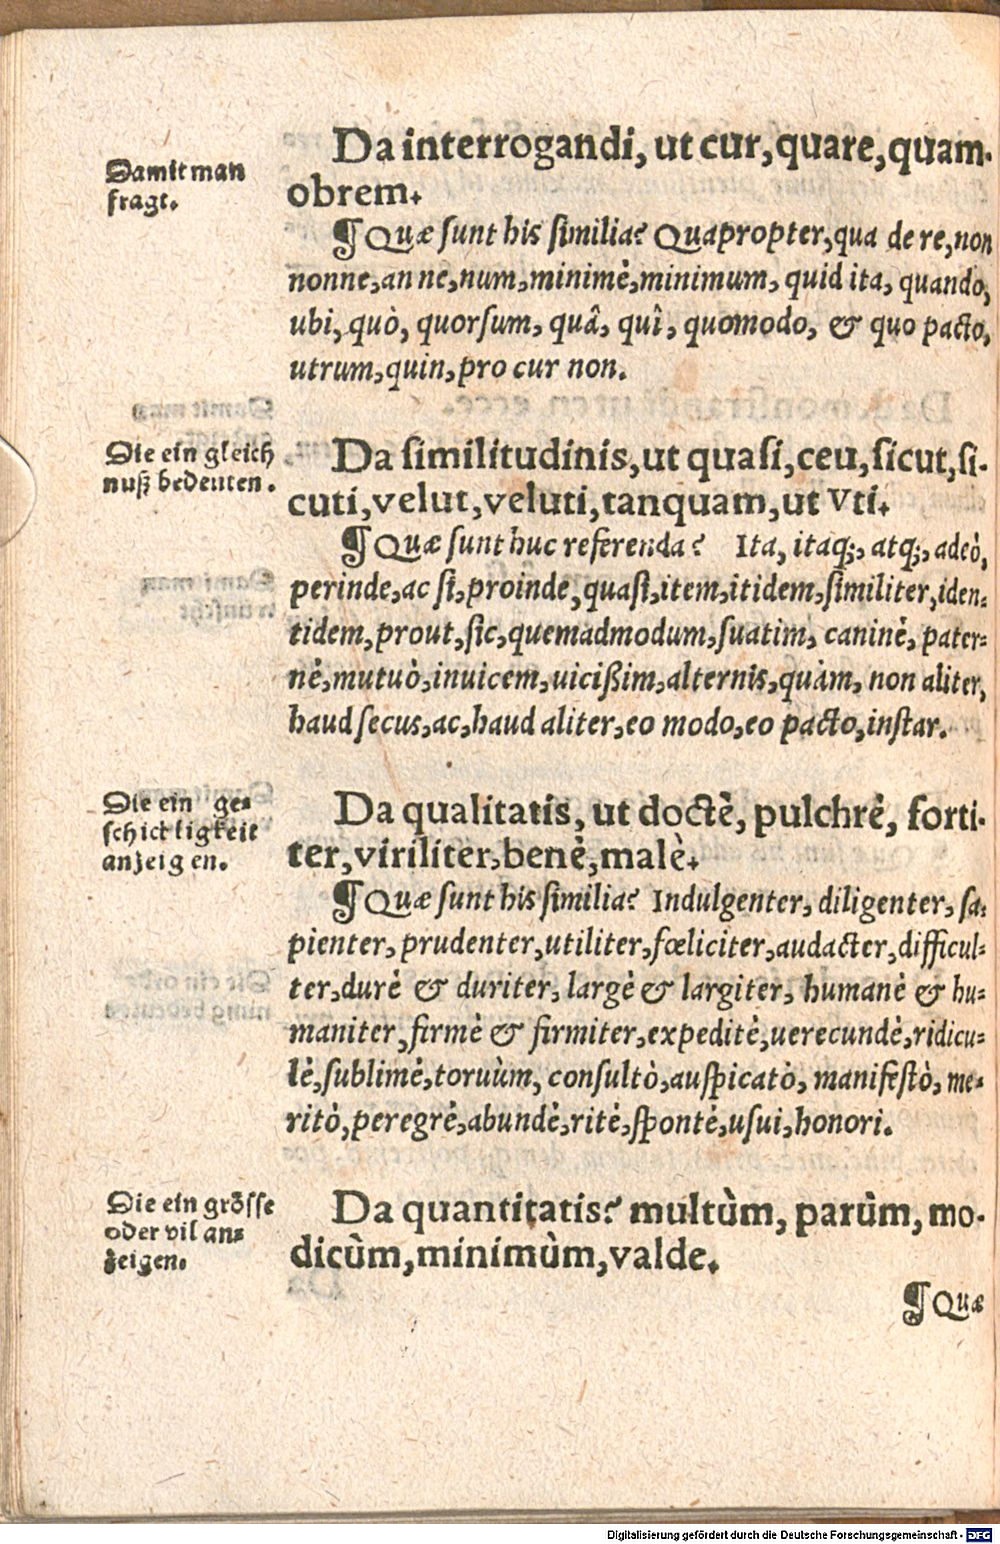 Damit man
fragt.
Da interrogandi, ut cur, quare, quam-
obrem.
¶ Quæ sunt his similia? Quapropter, qua de re, non
nonne, an ne, num, minimè, minimum, quid ita, quando,
ubi, quò, quorsum, quâ, quî, quomodo, & quo pacto,
utrum, quin, pro cur non.
Die ein gleich
nuß bedeuten.
Da similitudinis, ut quasi, ceu, sicut, si-
cuti, velut, veluti, tanquam, ut Vti.
¶ Quæ sunt huc referenda? Ita, itaq;, atq;, adeò,
perinde, ac si, proinde, quasi, item, itidem, similiter, iden-
tidem, prout, sic, quemadmodum, suatim, caninè, pater-
nè, mutuò, inuicem, uicißim, alternis, quàm, non aliter,
haud secus, ac, haud aliter, eo modo, eo pacto, instar.
Die ein ge-
schickligkeit
anzeigen.
Da qualitatis, ut doctè, pulchrè, forti-
ter, viriliter, benè, malè.
¶ Quæ sunt his similia? Indulgenter, diligenter, sa-
pienter, prudenter, utiliter, fœliciter, audacter, difficul-
ter, durè & duriter, largè & largiter, humanè & hu-
maniter, firmè & firmiter, expeditè, uerecundè, ridicu-
lè, sublimè, toruùm, consultò, auspicatò, manifestò, me-
ritò, peregrè, abundè, ritè, spontè, usui, honori.
Die ein grösse
oder vil an-
zeigen.
Da quantitatis? multùm, parùm, mo-
dicùm, minimùm, valde.
¶ Quæ
Digitalisierung gefördert durch die Deutsche Forschungsgemeinschaft - DFG